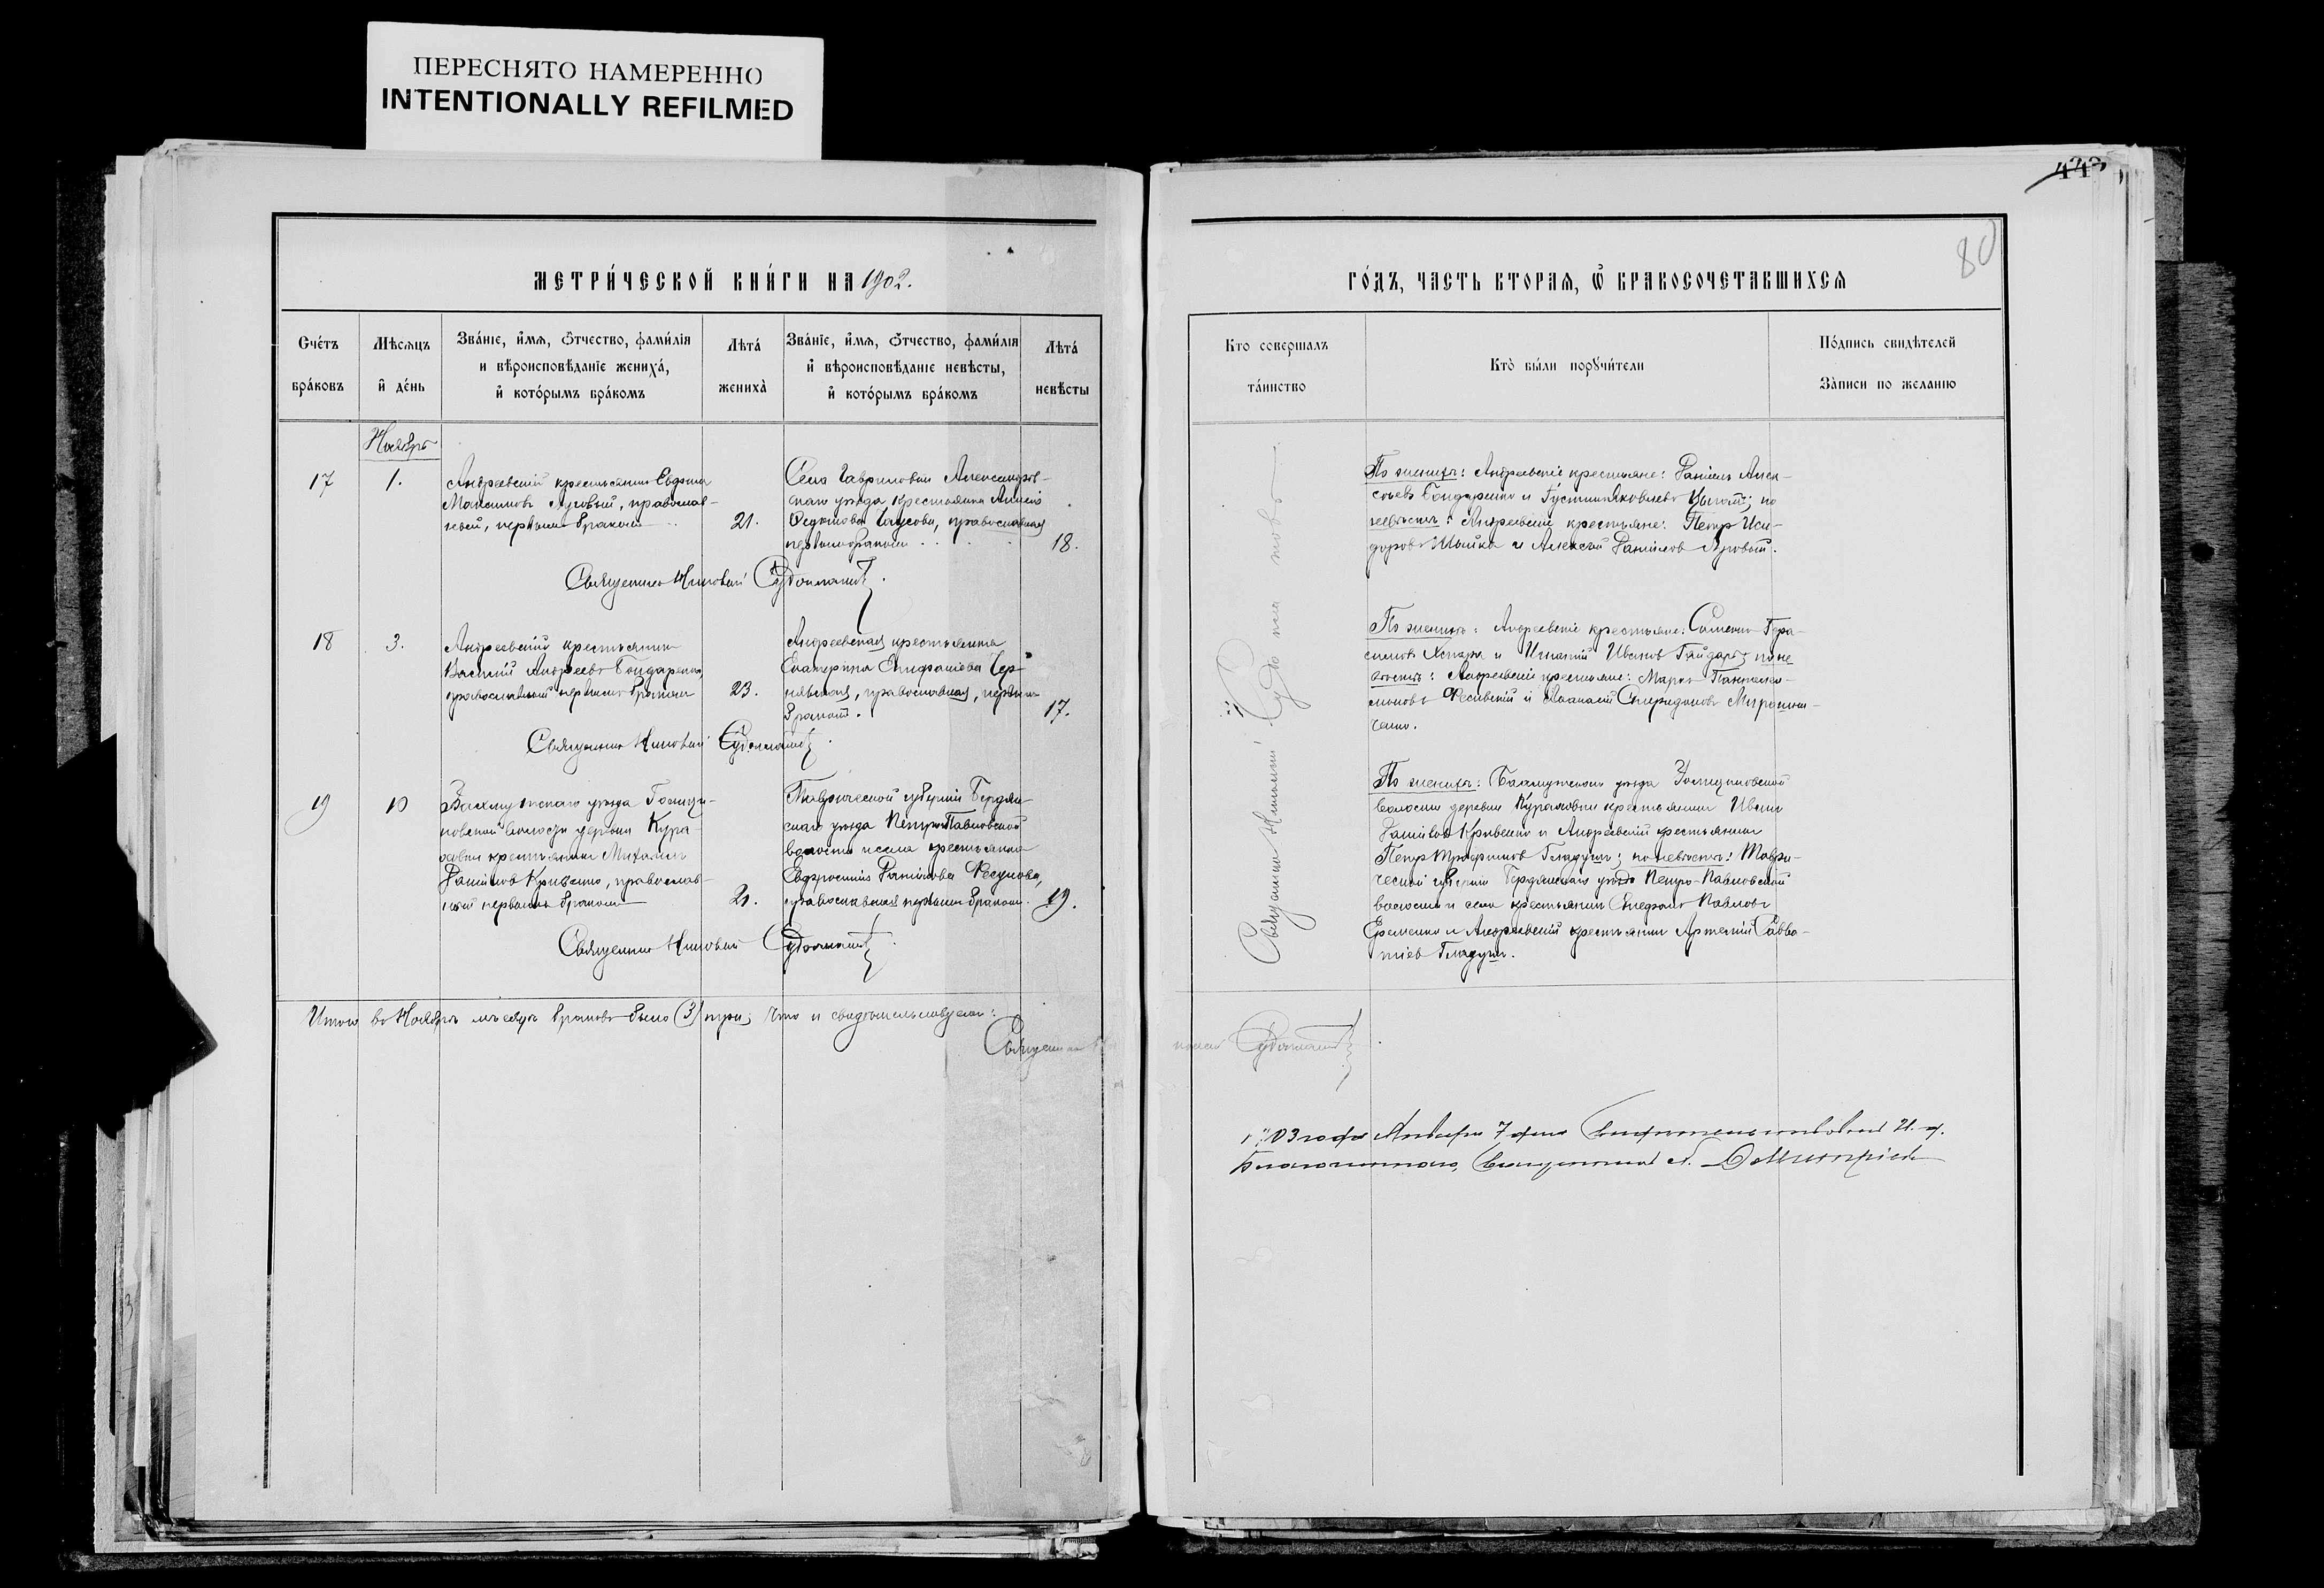 ПЕРЕСНЯТО НАМЕРЕННО
INTENTIONALLY REFILMED
443
80
МЕТРИ́ЧЕСКОЙ КНИ́ГИ НА 1902.
ГО́ДЪ, ЧАСТЬ ВТОРАѦ, Ѡ҆ БРАКОСОЧЕТАВШИХСѦ
Сче́тъ бра́ковъ
Мѣсѧцъ и҆ де́нь
Зва́нїе, и҆́мѧ, ѻ҆́тчество, фами́лїѧ
и вѣроисповѣ́данїе жениха́,
и҆ кото́рымъ бра́комъ
Лѣта́ жениха̀
Зва́нїе, и҆́мѧ, ѻ҆́тчество, фами́лїѧ
и҆ вѣроисповѣ́данїе невѣ́сты,
и҆ кото́рымъ бра́комъ
Лѣта́ невѣ́сты
Кто совершалъ та́инство
Кто̀ бы́ли порꙋчи́тели
По́дпись свидѣ́телей
За́писи по желанїю
Ноябрь
17
1.
Андреевскій крестьянинъ
Максимовъ Луговый, православ-
ный, первымъ бракомъ
21.
Села Гавриловки Александров-
скаго уѣзда крестьянка
православная
первымъ бракомъ
18.
Священникъ Судоманъ
По женихѣ: Андреевскіе крестьяне: Даніилъ Алек-
сѣевъ Бондаренко и Іустинъ Яковлевъ; по
невѣстѣ: Андреевскіе крестьяне: Петръ Иси-
доровъ и Алексѣй Даніиловъ Луговый.
18
3.
Андреевскій крестьянинъ
Василій Андреевъ Бондаренко,
православный первымъ бракомъ
23.
Андреевская крестьянка
Екатерина Епифаніева Чер-
нявская, православная, первымъ
бракомъ.
17.
Священникъ Судоманъ
По женихѣ: Андреевскіе крестьяне: Симеонъ Гера-
симовъ и Игнатій Ивановъ Гайдаръ; по не-
вѣстѣ: Андреевскіе крестьяне: Маркъ Пантелеи-
моновъ и Аѳанасій Спиридоновъ Мирошни-
ченко.
19
10
Бахмутскаго уѣзда
волости деревни Кура-
ховки крестьянинъ Михаилъ
Даніиловъ Кривенко, православ-
ный первымъ бракомъ
21.
Таврической губерніи Бердян-
скаго уѣзда Петро-Павловской
волости и села крестьянка
Евфросинія Даніилова Фесунова,
православная первымъ бракомъ.
19.
Священникъ Судоманъ
По женихѣ: Бахмутскаго уѣзда
волости деревни Кураховки крестьянинъ Иванъ
Даніиловъ Кривенко и Андреевскій крестьянинъ
Петръ Трофимовъ Гладушъ; по невѣстѣ: Таври-
ческой губерніи Бердянскаго уѣзда Петро-Павловской
волости и села крестьянинъ Стефанъ Павловъ
Еременко и Андреевскій крестьянинъ Артемій Савва-
тіевъ Гладушъ.
Итого въ Ноябрѣ мѣсяцѣ браковъ было (3) три; что и свидѣтельствуемъ:
Священникъ Судоманъ
1903 года Января 7 дня Свидѣтельствовалъ И. д.
Благочиннаго, Священникъ Димитріевъ